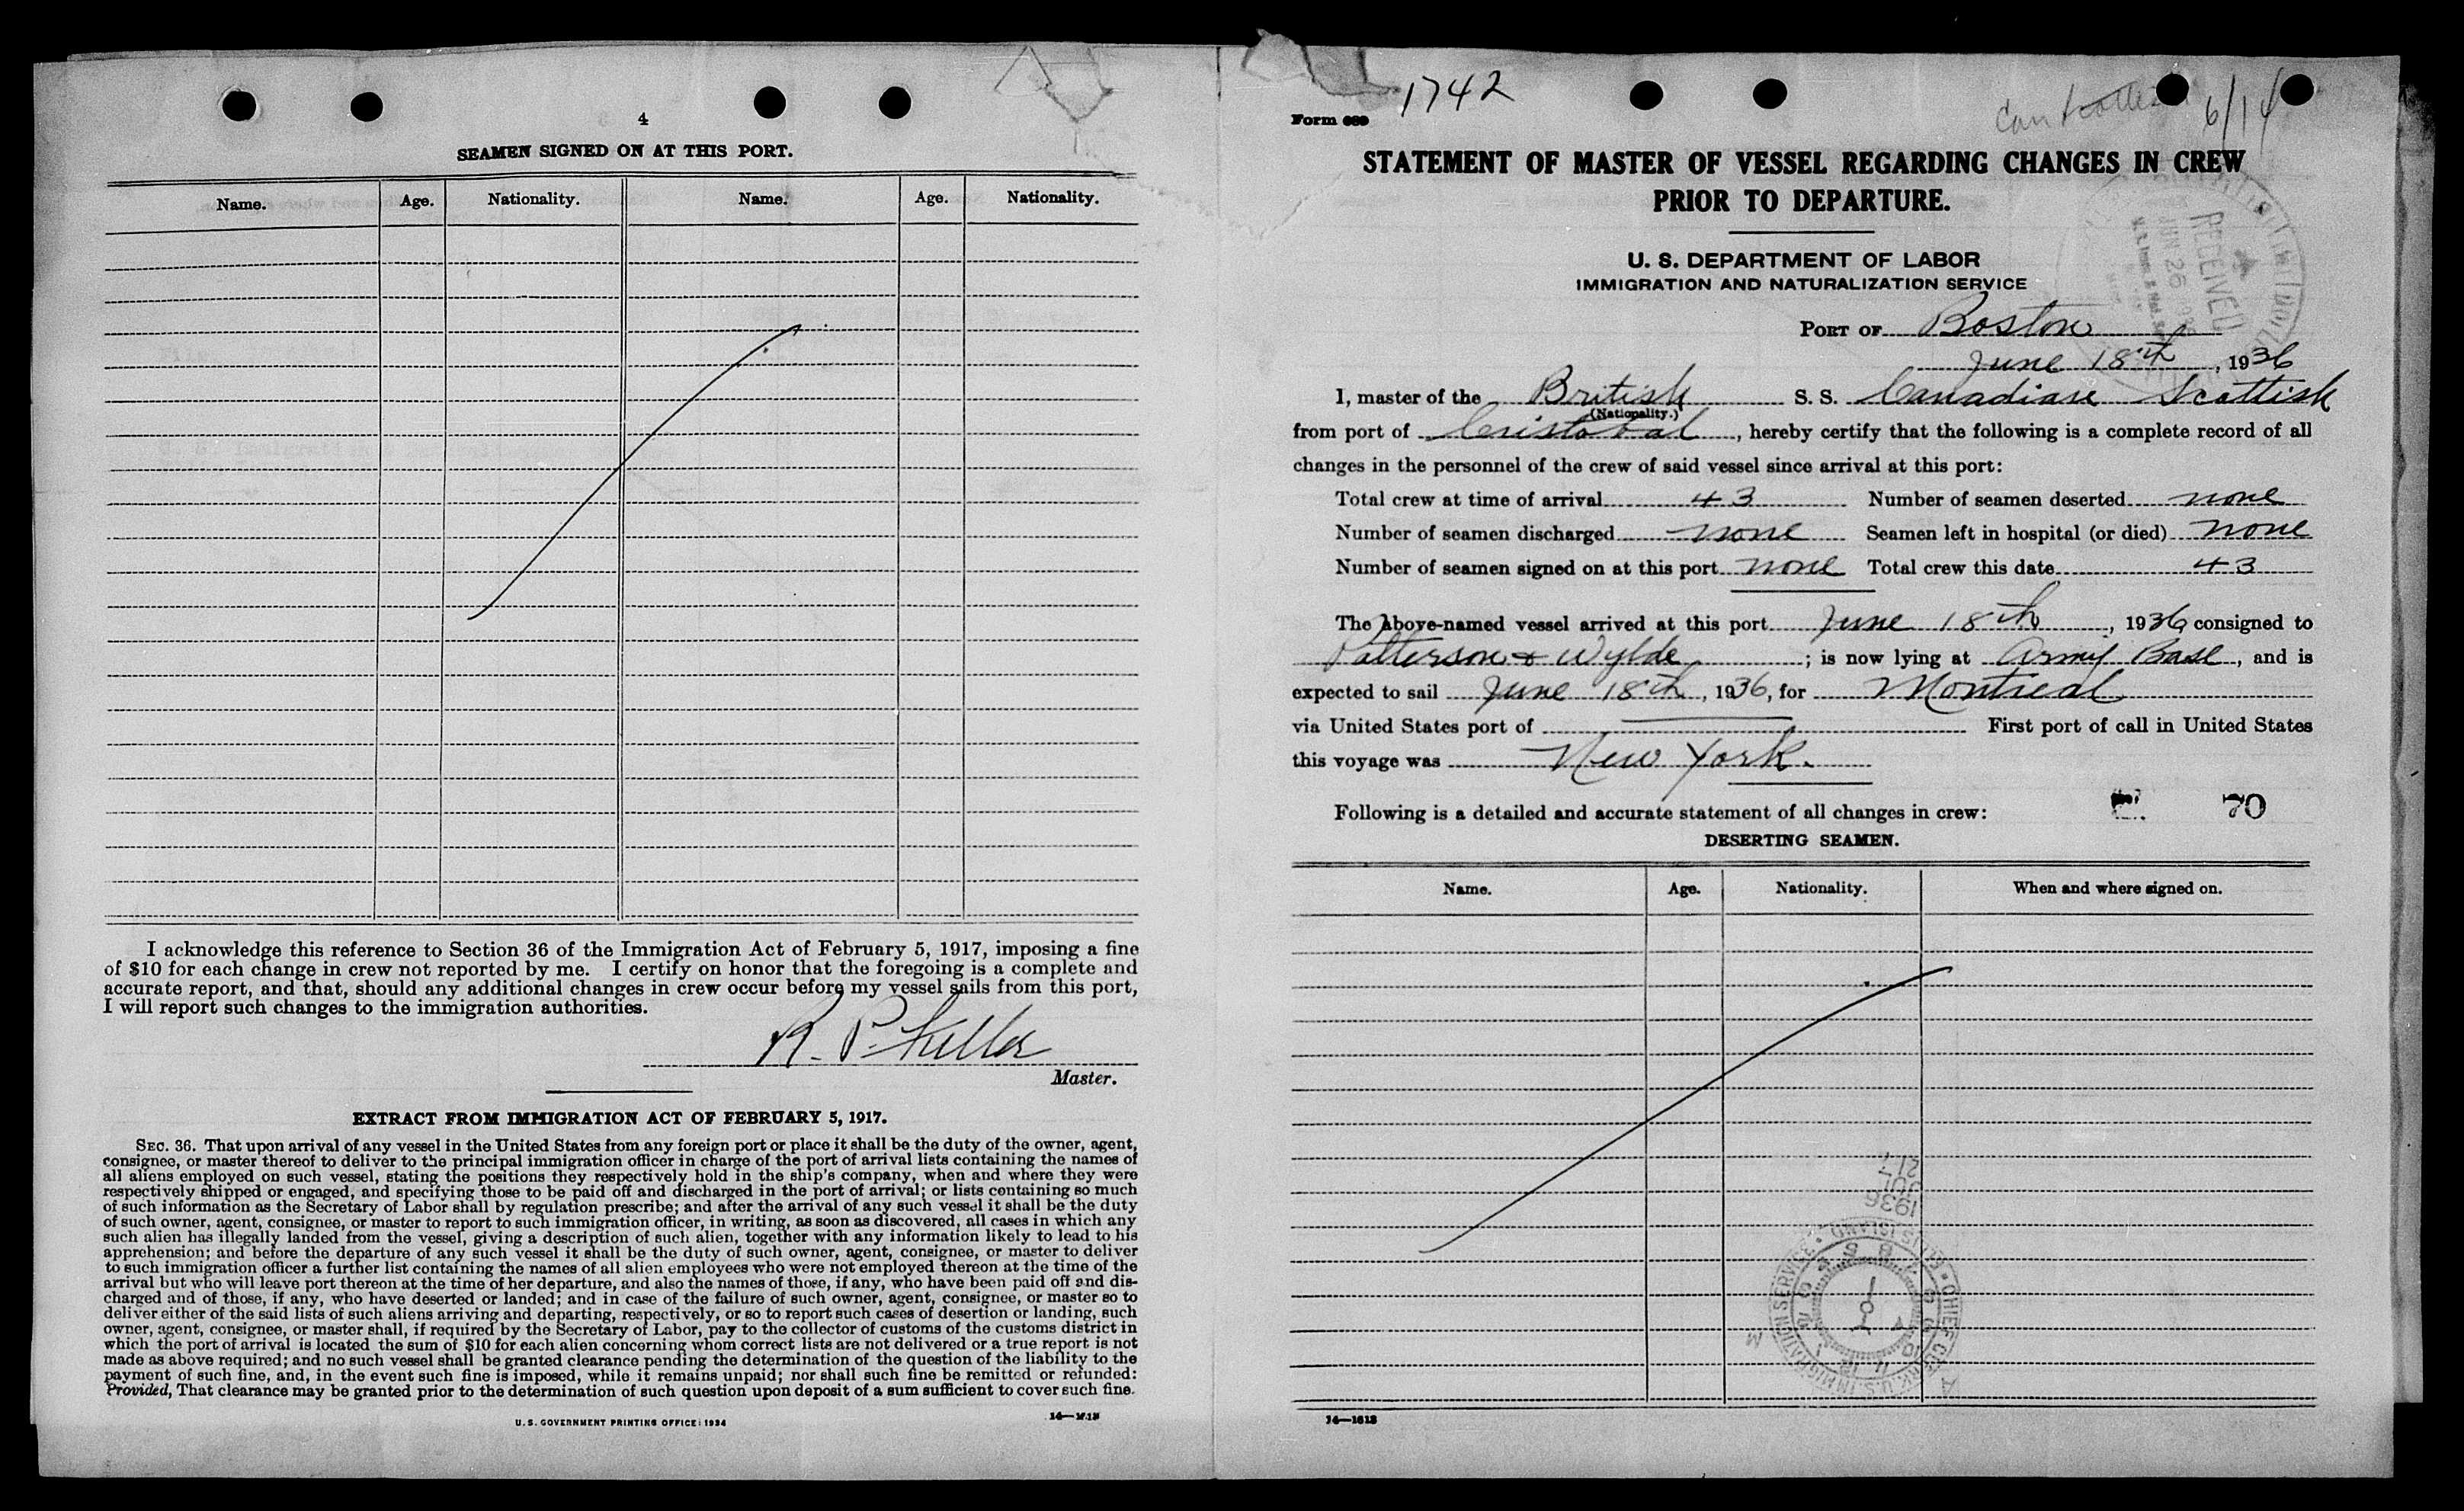 4
SEAMEN SIGNED ON AT THIS PORT.
Name. Age. Nationality. Name. Age. Nationality.
I acknowledge this reference to Section 36 of the Immigration Act of February 5, 1917, imposing a fine
of $10 for each change in crew not reported by me. I certify on honor that the foregoing is a complete and
accurate report, and that, should any additional changes in crew occur before my vessel sails from this port,
I will report such changes to the immigration authorities.
R. P.
Master.
EXTRACT FROM IMMIGRATION ACT OF FEBRUARY 5, 1917.
SEC. 36. That upon arrival of any vessel in the United States from any foreign port or place it shall be the duty of the owner, agent,
consignee, or master thereof to deliver to the principal immigration officer in charge of the port of arrival lists containing the names of
all aliens employed on such vessel, stating the positions they respectively hold in the ship's company, when and where they were
respectively shipped or engaged, and specifying those to be paid off and discharged in the port of arrival; or lists containing so much
of such information as the Secretary of Labor shall by regulation prescribe; and after the arrival of any such vessel it shall be the duty
of such owner, agent, consignee, or master to report to such immigration officer, in writing, as soon as discovered, all cases in which any
such alien has illegally landed from the vessel, giving a description of such alien, together with any information likely to lead to his
apprehension; and before the departure of any such vessel it shall be the duty of such owner, agent, consignee, or master to deliver
to such immigration officer a further list containing the names of all alien employees who were not employed thereon at the time of the
arrival but who will leave port thereon at the time of her departure, and also the names of those, if any, who have been paid off and dis-
charged and of those, if any, who have deserted or landed; and in case of the failure of such owner, agent, consignee, or master so to
deliver either of the said lists of such aliens arriving and departing, respectively, or so to report such cases of desertion or landing, such
owner, agent, consignee, or master shall, if required by the Secretary of Labor, pay to the collector of customs of the customs district in
which the port of arrival is located the sum of $10 for each alien concerning whom correct lists are not delivered or a true report is not
made as above required; and no such vessel shall be granted clearance pending the determination of the question of the liability to the
payment of such fine, and, in the event such fine is imposed, while it remains unpaid; nor shall such fine be remitted or refunded:
Provided, That clearance may be granted prior to the determination of such question upon deposit of a sum sufficient to cover such fine.
U. S. GOVERNMENT PRINTING OFFICE: 1934
Form 689 1742
6/14
STATEMENT OF MASTER OF VESSEL REGARDING CHANGES IN CREW
PRIOR TO DEPARTURE.
RECEIVED
JUN 26 1936
U. S. DEPARTMENT OF LABOR
IMMIGRATION AND NATURALIZATION SERVICE
PORT OF Boston
June 18th, 1936
I, master of the British S. S. Canadian Scottish
(Nationality.)
from port of Cristobal, hereby certify that the following is a complete record of all
changes in the personnel of the crew of said vessel since arrival at this port:
Total crew at time of arrival 43 Number of seamen deserted none
Number of seamen discharged none Seamen left in hospital (or died) none
Number of seamen signed on at this port none Total crew this date 43
The above-named vessel arrived at this port June 18th, 1936, consigned to
Patterson & Wylde; is now lying at Army Base, and is
expected to sail June 18th, 1936, for Montreal
via United States port of First port of call in United States
this voyage was New York.
Following is a detailed and accurate statement of all changes in crew:
70
DESERTING SEAMEN.
Name. Age. Nationality. When and where signed on.
1936
JUL
21
CHIEF CLERK, U.S. IMMIGRATION SERVICE · ELLIS ISLAND
14—1613